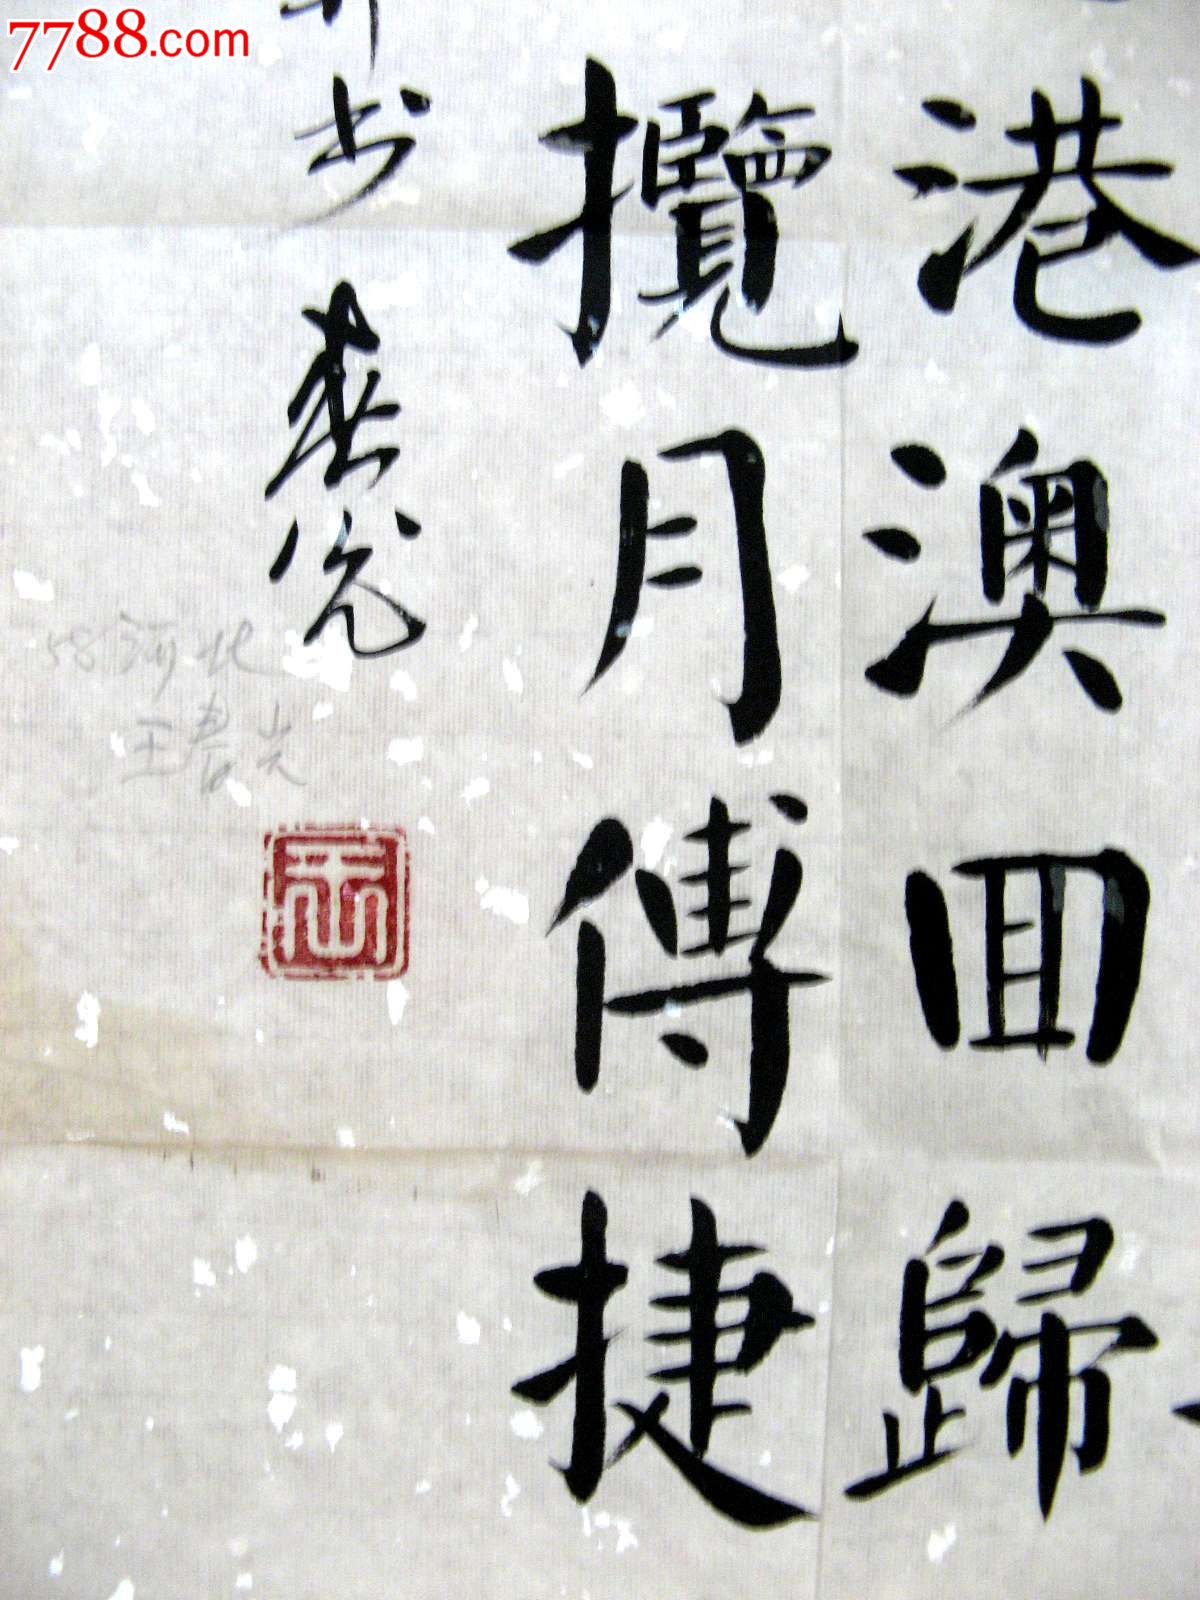 7788.com
港澳回歸
攬月傅捷
书春光
58河北
王春光